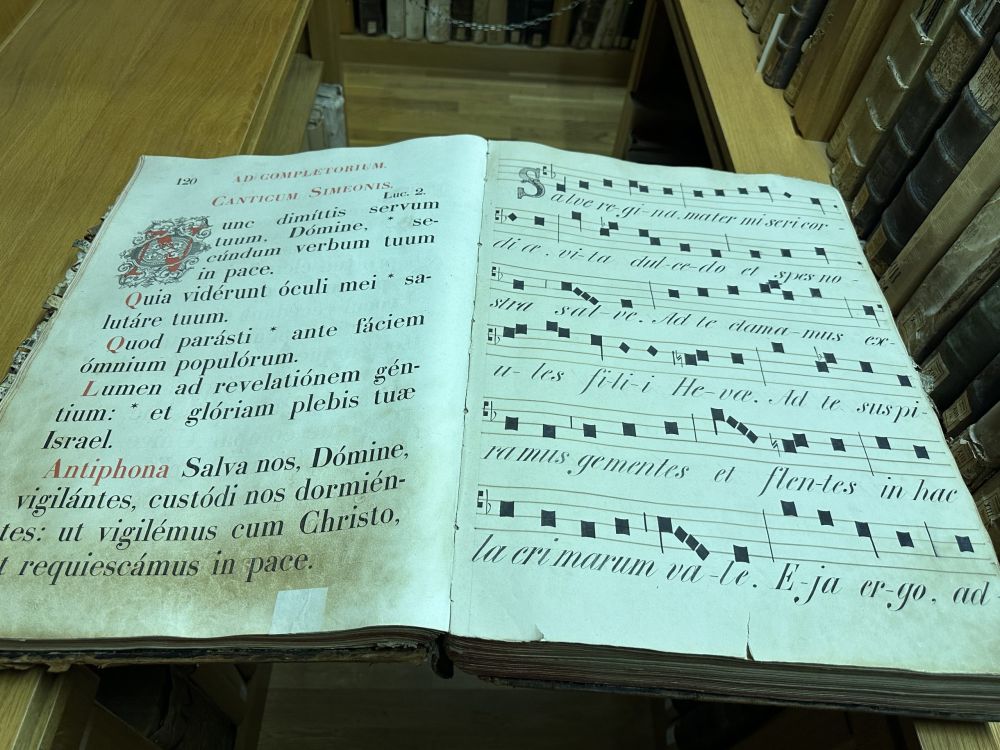 120
AD COMPLETORIUM.
CANTICUM SIMEONIS.
Luc. 2.
Nunc dimíttis servum
tuum, Dómine, * se-
cúndum verbum tuum
in pace.
Quia vidérunt óculi mei * sa-
lutáre tuum.
Quod parásti * ante fáciem
ómnium populórum.
Lumen ad revelatiónem gén-
tium: * et glóriam plebis tuæ
Israel.
Antiphona Salva nos, Dómine,
vigilántes, custódi nos dormién-
tes: ut vigilémus cum Christo,
t requiescámus in pace.
Salve re-gi-na, mater mi seri cor-
di æ, vi-ta dul-ce-do et spes no-
stra sal-ve. Ad te clama-mus ex-
u-les fi-li-i He-væ. Ad te suspi-
ra mus gementes et flen-tes in hac
la cri marum va-le. E-ja er-go, ad-